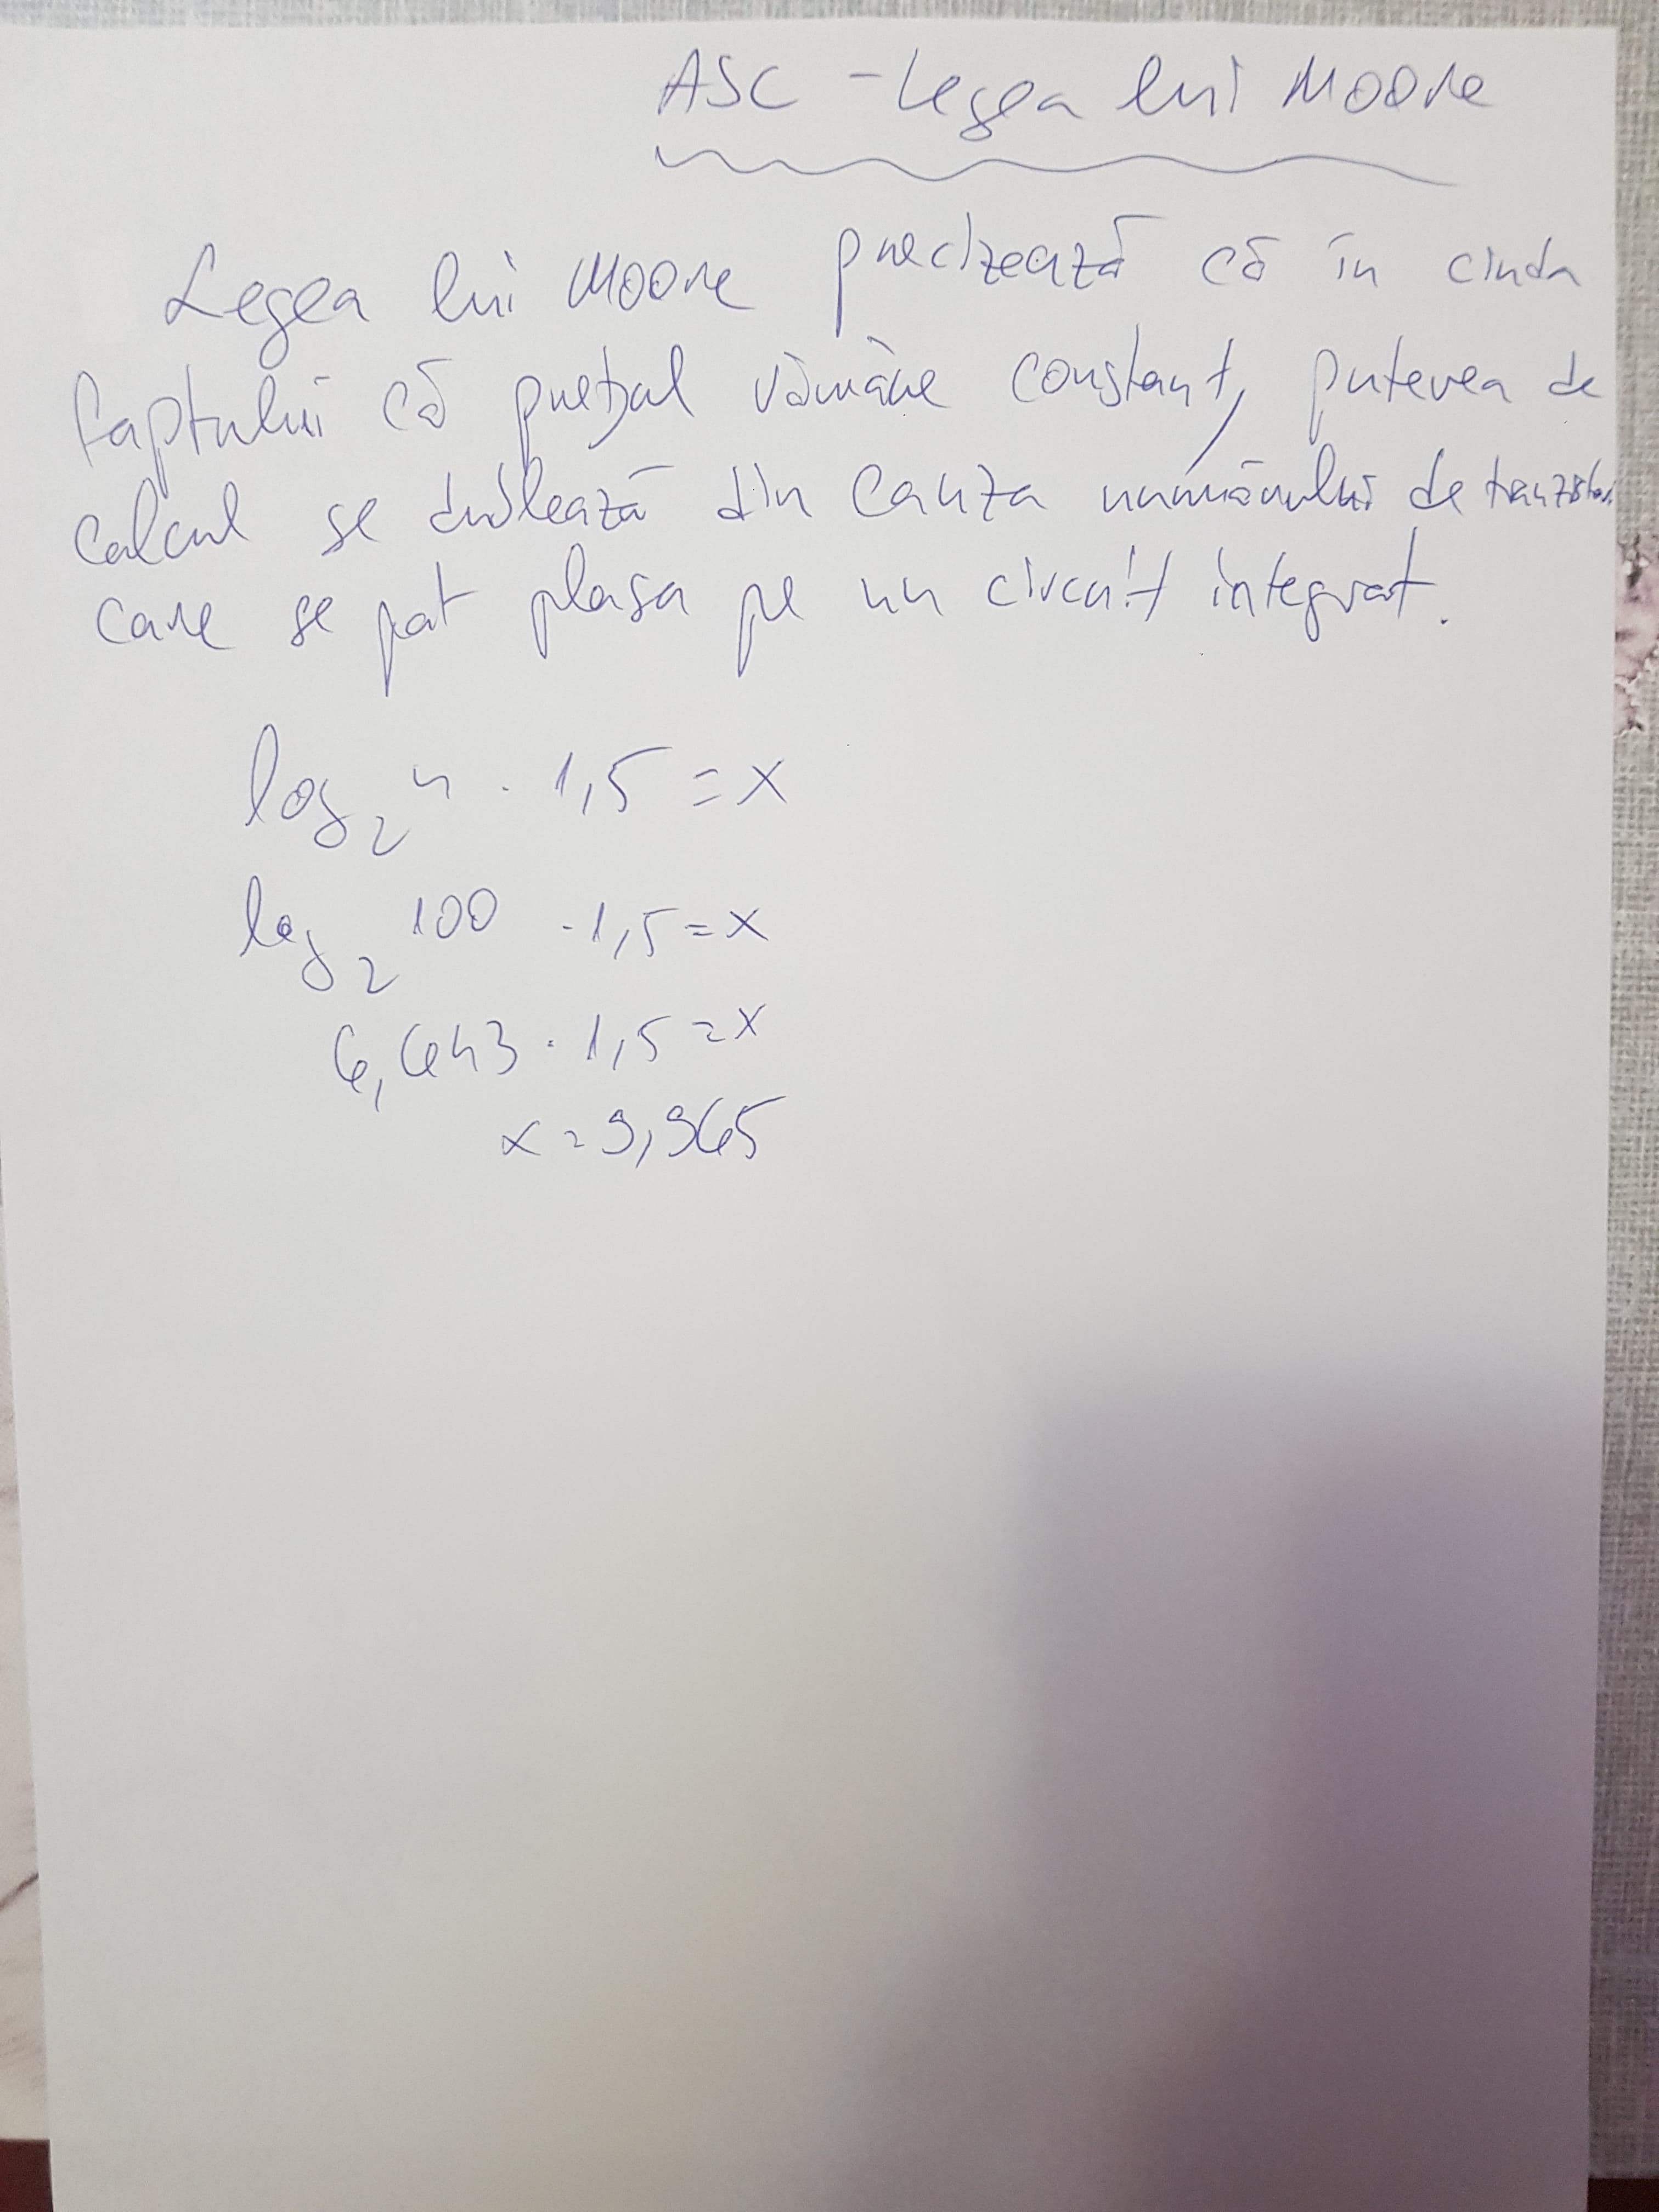 ASC - Legea lui Moore
Legea lui Moore precizează că în ciuda
faptului că prețul rămâne constant, puterea de
calcul se dublează din cauza numărului de tranzistori
care se pot plasa pe un circuit integrat.
log₂ n · 1,5 = x
log₂ 100 · 1,5 = x
6,643 · 1,5 = x
x = 9,965